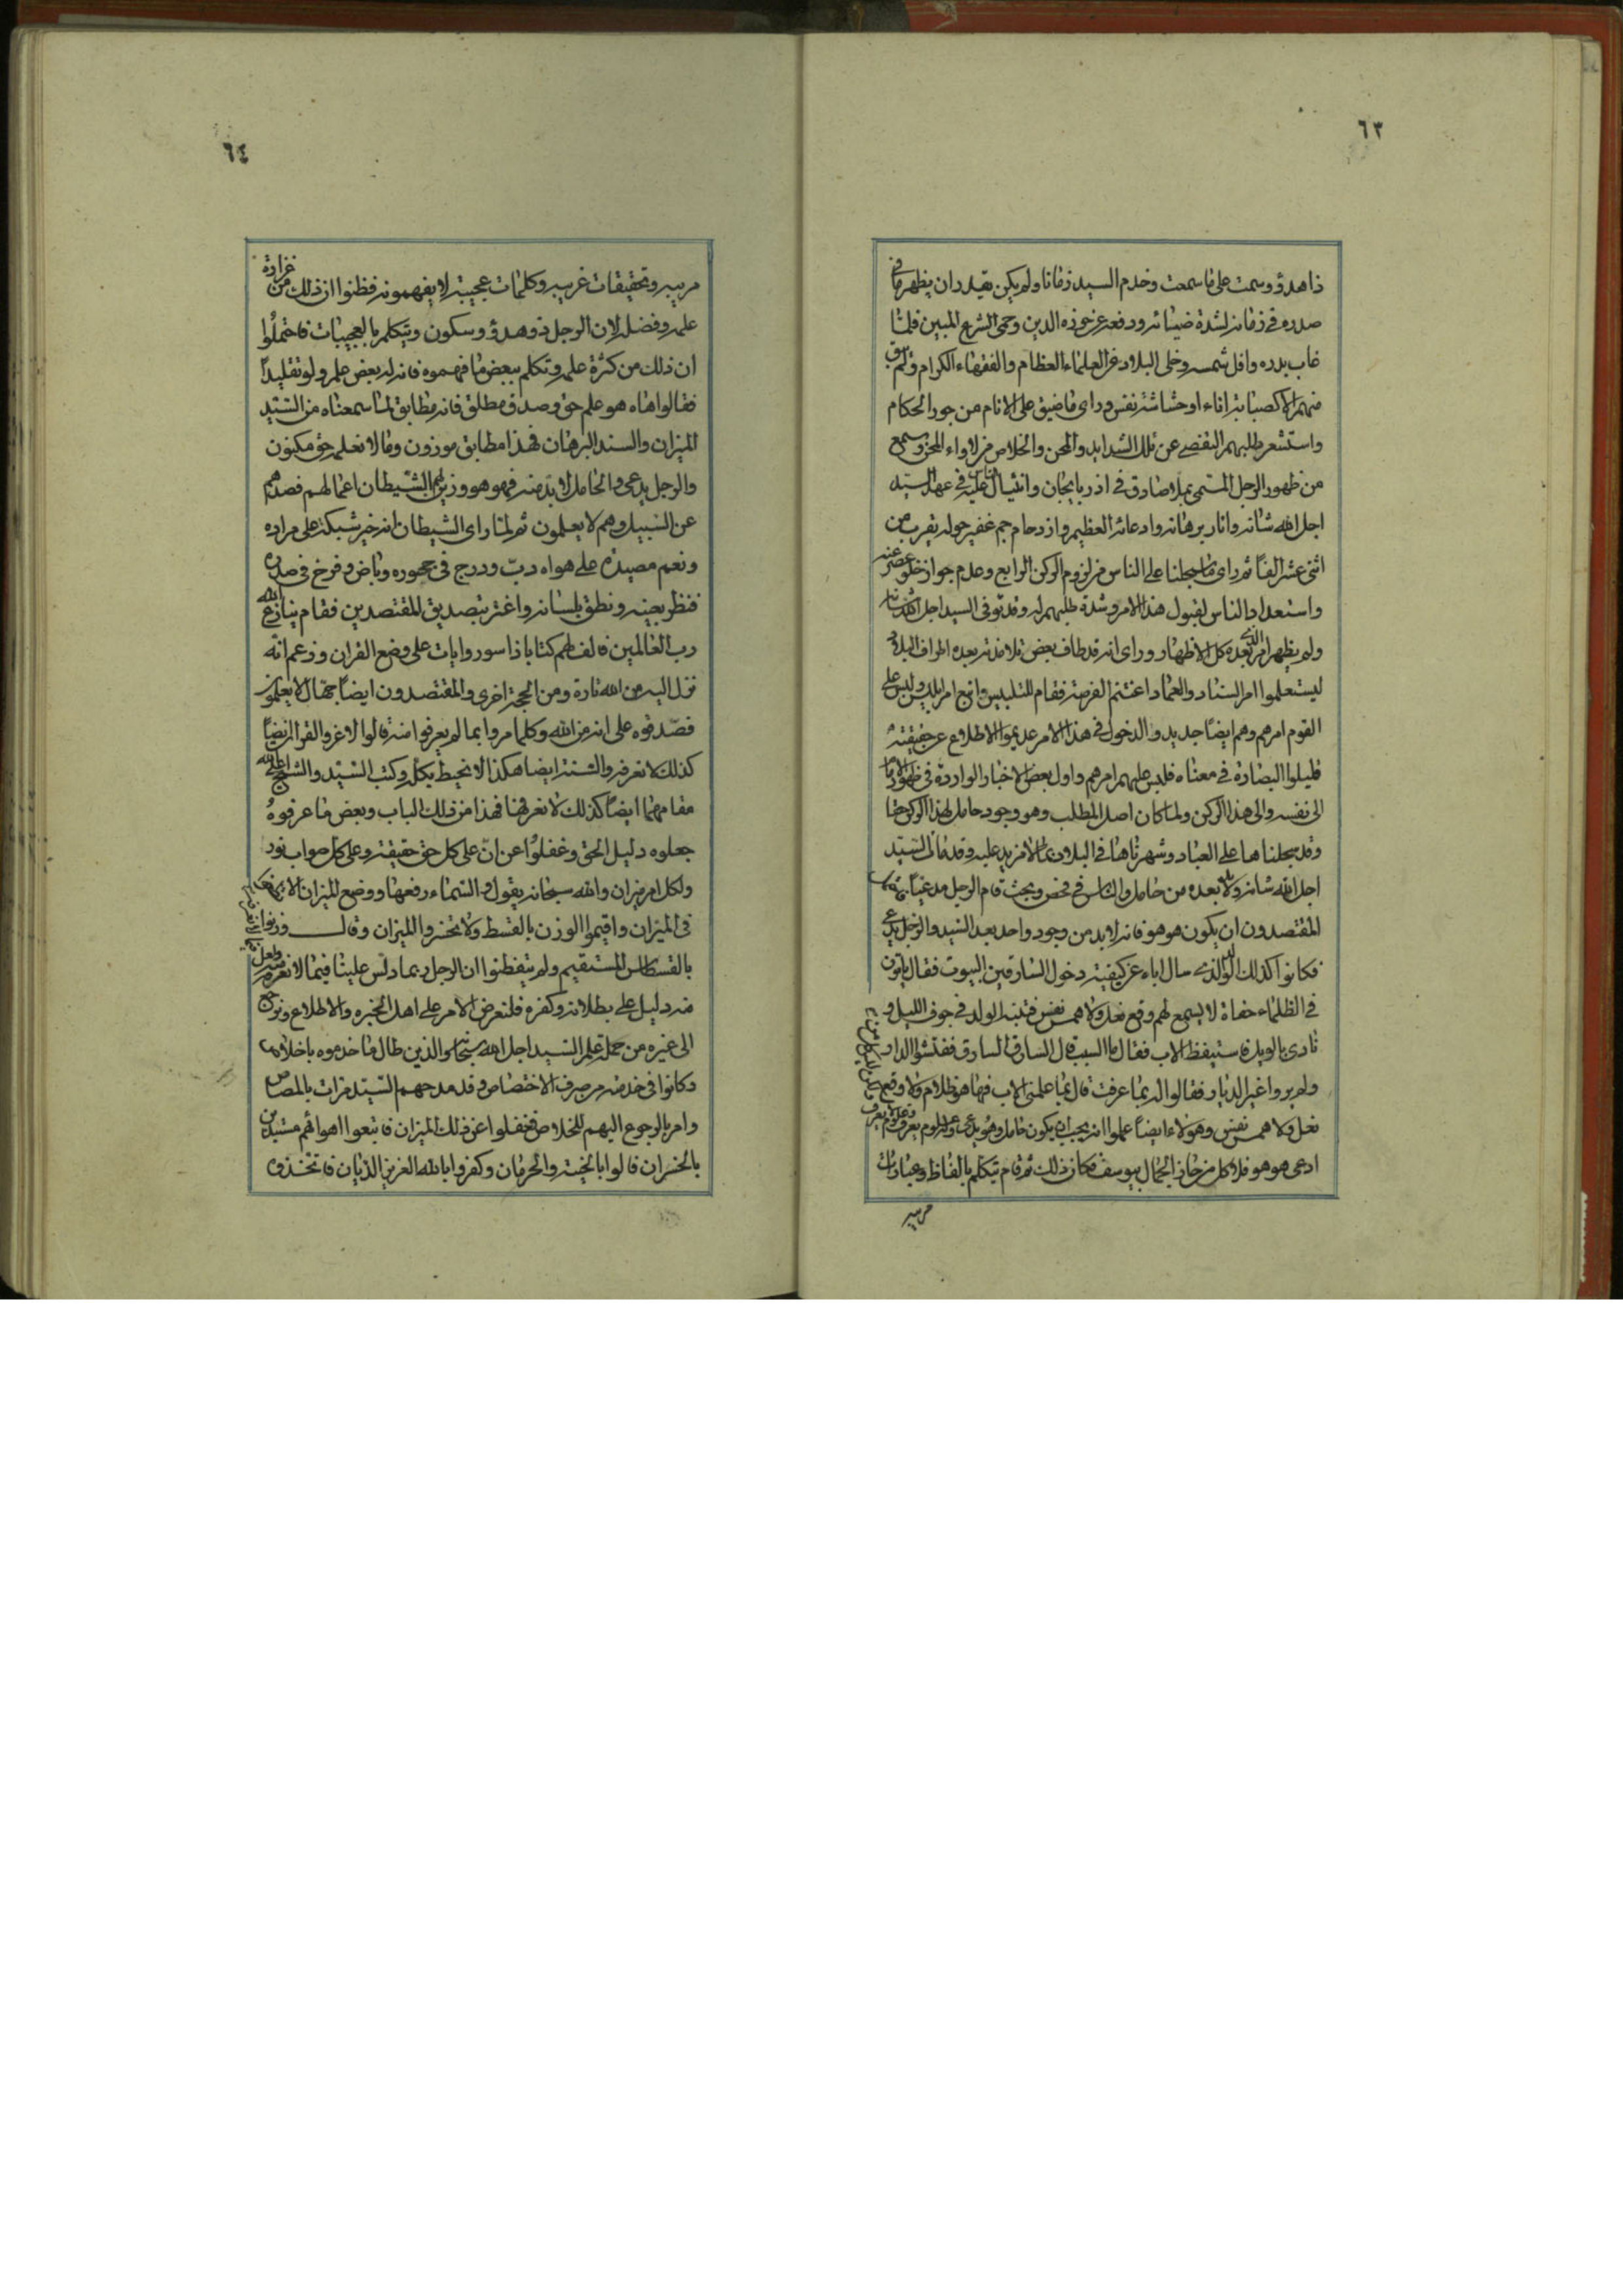 ٦٣
ذا هدؤ وسمت على ما سمعت وخدم السيد زمانا ولم يكن يقدر ان يظهر ما فى
صدره فى زمانه لشدة ضيائه ودفعه عن حوزه الدين وحمى الشرع المبين فلما
غاب بدره وافل شمسه وخلى البلاد عن العلماء العظام والفقهاء الكرام ولم يبق
منهم الا كصبابة اناء او حشاشة نفس وراى ما ضيق على الانام من جور الحكام
واستشعر طلبهم التفصى عن تلك الشدايد والمحن والخلاص من لاواء المحن وسمع
من ظهور الرجل المسمى بملا صادق فى اذربايجان وانثيال الناس عليه فى عهد السيد
اجل الله شانه وانار برهانه وادعائه العظيم وازدحام جم غفير حوله يقرب من
اثنى عشر الفا ثم راى ما سجلنا على الناس من لزوم الركن الرابع وعدم جواز خلو عصر عنه
واستعداد الناس لقبول هذا الامر وشدة طلبهم له وقد توفى السيد اجل الله شانه
ولم يظهر امر الذى بعده كل الاظهار وراى انه قد طاف بعض تلامذته بعده اطراف البلاد
ليستعلموا امر السناد والعماد اغتنم الفرصة فقام للتلبيس واتبع امر ابليس ولبس على
القوم امرهم وهم ايضا جديدوا الدخول فى هذا الامر عديموا الاطلاع عن حقيقته
قليلوا البصارة فى معناه فلبس عليهم امرهم واول بعض الاخبار الواردة فى ظهور الامام
الى نفسه والى هذا الركن ولما كان اصل المطلب وهو وجود حامل لهذا الركن حقا
وقد سجلناها على العباد وشهرناها فى البلاد بما لا مزيد عليه وقد مات السيد
اجل الله شانه ولا بد بعده من حامل والناس فى فحص وبحث قام الرجل مدعيا
المقتصدون ان يكون هو هو فانه لا بد من وجود واحد بعد السيد والرجل يدعى
فكانوا كذلك الولد الذى سال اباه عن كيفية دخول السارقين البيوت فقال ياتون
فى الظلماء حفاة لا يسمع لهم وقع نعل ولا همس نفس فتنبه الولد فى جوف الليل و
نادى بالويل فاستيقظ الاب فقال ما السبب قال السارق السارق ففتشوا الدار
ولم يروا غير الديار فقالوا له بما عرفت قال بما علمنى الاب فها هو ظلام ولا وقع
نعل ولا همس نفس وهؤلاء ايضا علموا انه يجب ان يكون حامل وهو يدعى
ادعى هو هو فلا كل من حاز الجمال بيوسف فكان ذلك ثم قام يتكلم بالفاظ وعبارات
مريبه
٦٤
مريبه وتحقيقات غريبه وكلمات عجيبة لا يفهمونه فظنوا ان ذلك من غزارة
علمه وفضله لان الرجل ذو هدؤ وسكون ويتكلم بالعجيبات فاحتملوا
ان ذلك من كثرة علمه وتكلم ببعض ما فهموه فانه له بعض علم ولو تقليدا
فقالوا هاه هو علم حق وصدق مطلق فانه مطابق لما سمعناه من السيد
الميزان والسند البرهان فهذا مطابق موزون وما لا نعلم حق مكنون
والرجل يدعى والحامل لا بد منه فهو هو وزين لهم الشيطان اعمالهم فصدهم
عن السبيل وهم لا يعلمون ثم لما راى الشيطان انه خير شبكة على مراده
ونعم مصيدة على هواه دب ودرج فى حجوره وباض وفرخ فى صدره
فنظر بعينه ونطق بلسانه واغتر بتصديق المقتصدين فقام ينازع الله
رب العالمين فالف لهم كتابا ذا سور وايات على وضع القران وزعم انه
نزل اليه من الله تارة ومن الحجة اخرى والمقتصدون ايضا جهال لا يعلمون
فصدقوه على انه من الله وكلما مروا بما لم يعرفوا منه قالوا لا غرو القران ايضا
كذلك لا نعرفه والسنة ايضا هكذا لا نحيط بكله وكتب السيد والشيخ اعلى الله
مقامهما ايضا كذلك لا نعرفها فهذا من ذلك الباب وبعض ما عرفوه
جعلوه دليل الحق وغفلوا عن ان على كل حق حقيقة وعلى كل صواب نور
ولكل امر ميزان والله سبحانه يقول والسماء رفعها ووضع الميزان الا تطغوا
فى الميزان واقيموا الوزن بالقسط ولا تخسروا الميزان وقال وزنوا
بالقسطاس المستقيم ولم يتفطنوا ان الرجل ربما دلس علينا فيما لا نعرفه ولعل
منه دليل على بطلانه وكفره فلنعرض الامر على اهل الخبره والاطلاع ونرجع
الى غيره من حملة علم السيد اجل الله سبحانه والذين طال ما خدموه باخلاص
وكانوا فى خدمته من صرف الاختصاص وقد مدحهم السيد مرات بالمصاص
وامر بالرجوع اليهم للخلاص فغفلوا عن ذلك الميزان فاتبعوا اهوائهم مستبدين
بالخسران فالوا بالخيبة والحرمان وكفروا بالله العزيز الديان فاتخذوه